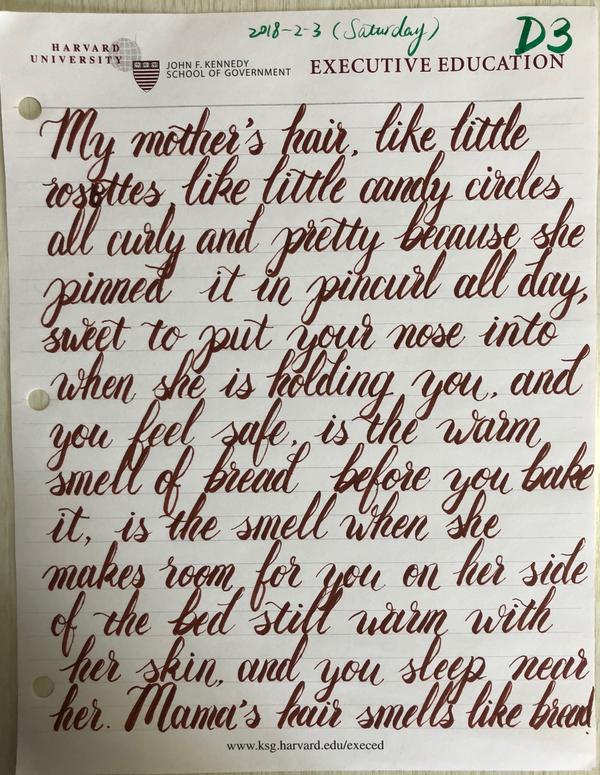 2018-2-3 (Saturday)
D3
HARVARD
UNIVERSITY
JOHN F. KENNEDY
SCHOOL OF GOVERNMENT
EXECUTIVE EDUCATION
My mother's hair, like little
rosettes, like little candy circles
all curly and pretty because she
pinned it in pincurl all day,
sweet to put your nose into
when she is holding you, and
you feel safe, is the warm
smell of bread before you bake
it, is the smell when she
makes room for you on her side
of the bed still warm with
her skin, and you sleep near
her. Mama's hair smells like bread.
www.ksg.harvard.edu/execed